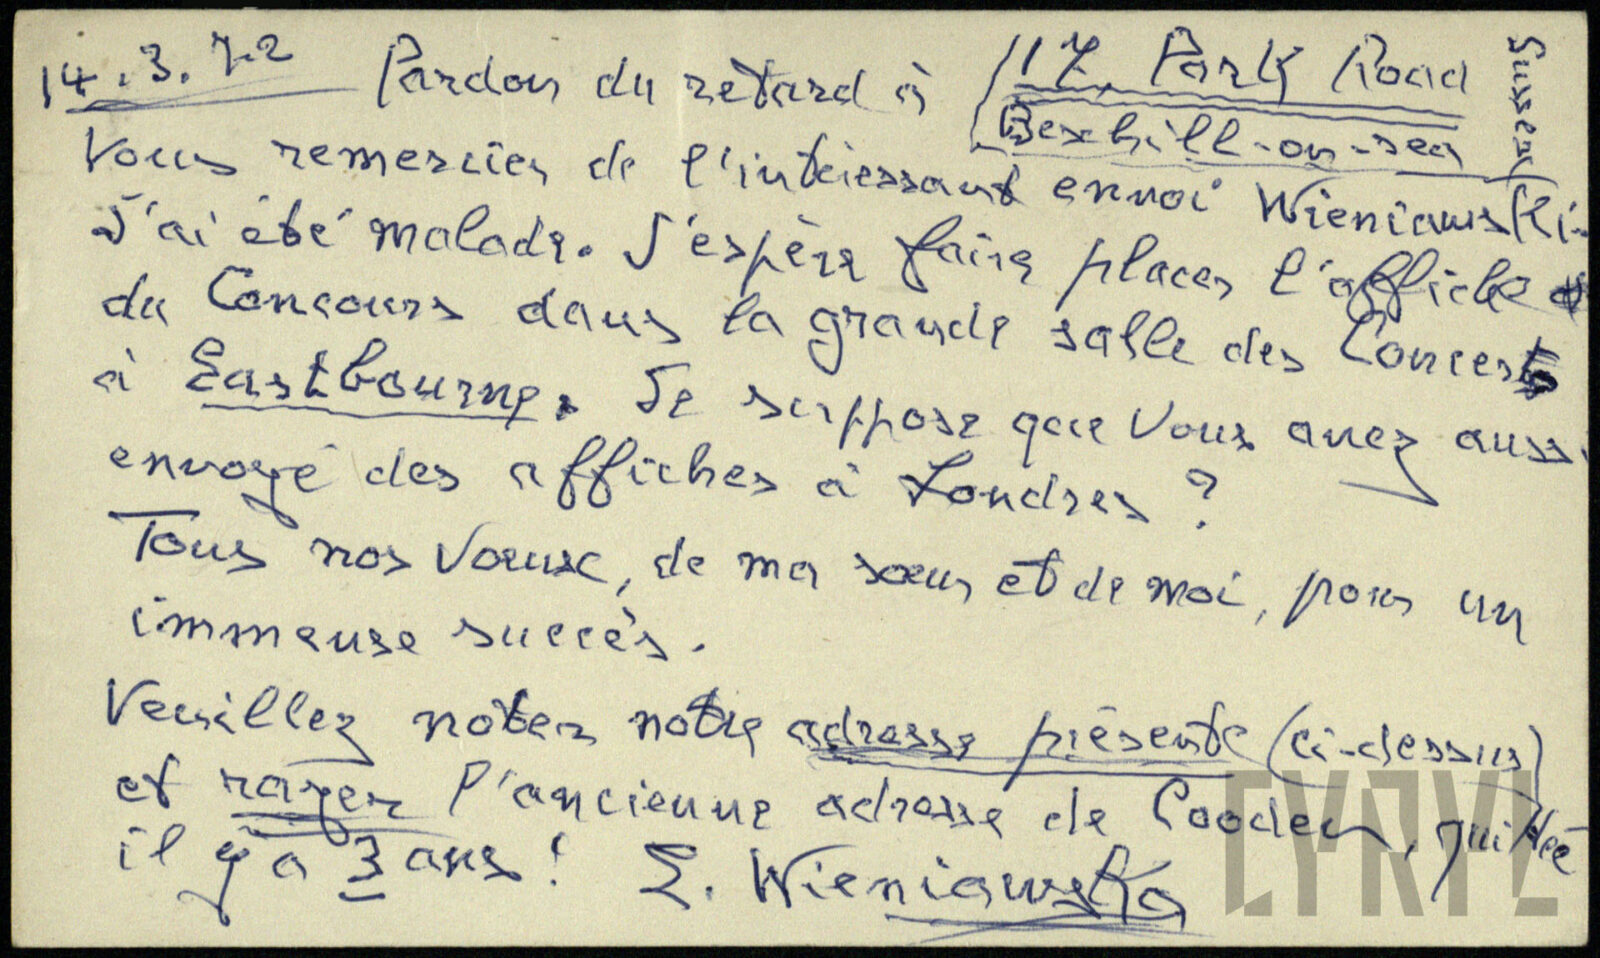 14.3.72 Pardon du retard à
117, Park Road
Bexhill-on-sea
Sussex
Vous remercier de l'intéressant envoi Wieniawski.
J'ai été malade. J'espère faire placer l'affiche
du Concours dans la grande salle des Concerts
à Eastbourne. Je suppose que Vous avez aussi
envoyé des affiches à Londres ?
Tous nos Voeux, de ma soeur et de moi, pour un
immense succès.
Veuillez noter notre adresse présente (ci-dessus)
et rayer l'ancienne adresse de Cooden, quittée
il y a 3 ans ! E. Wieniawska
CYRYL